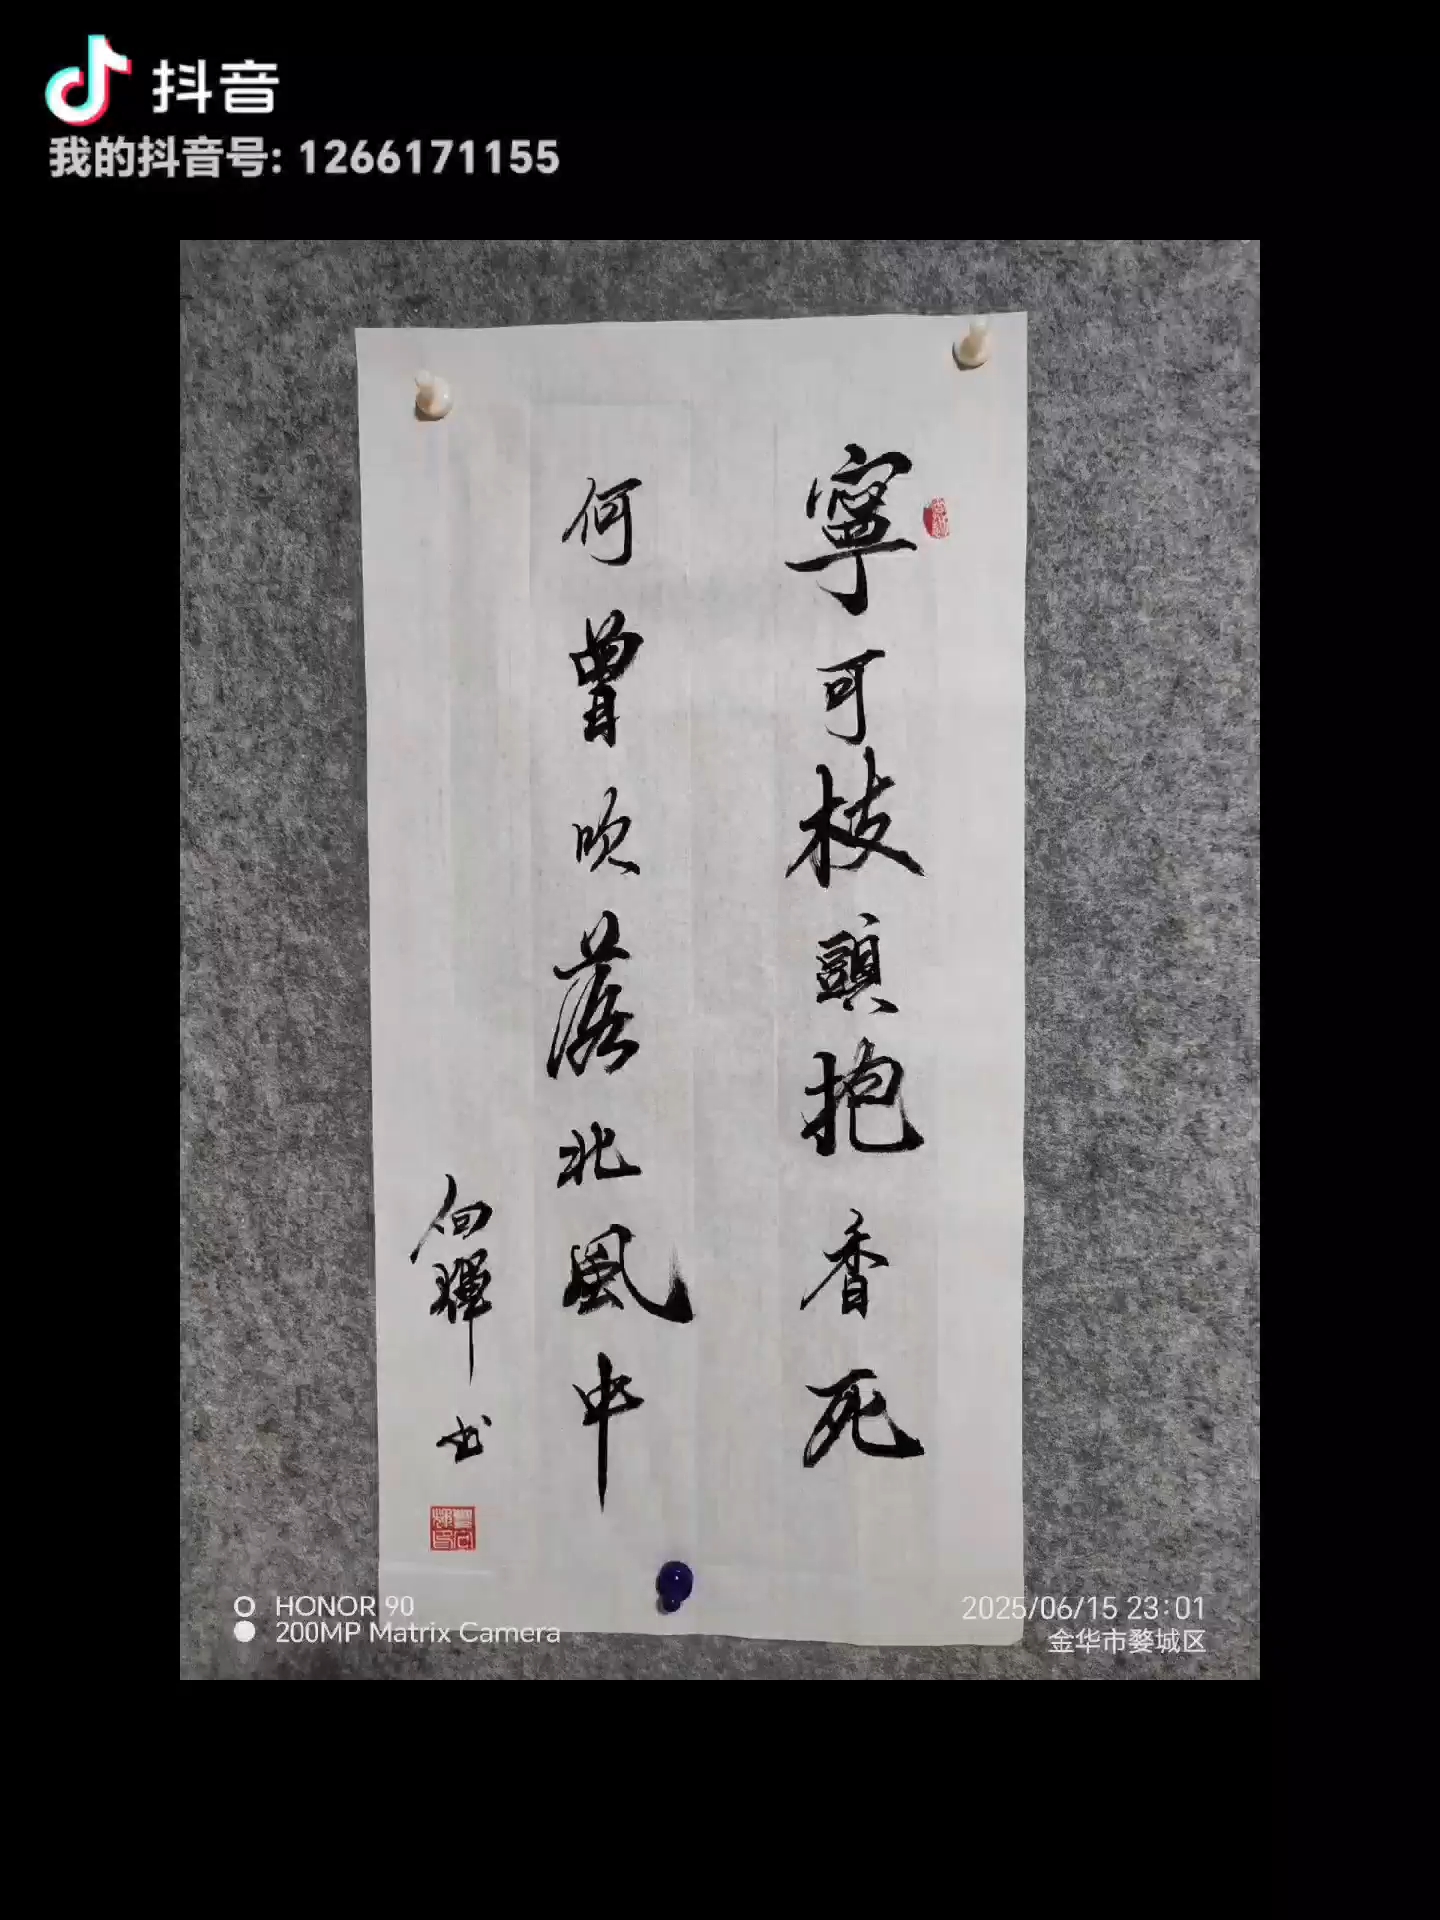 抖音
我的抖音号: 1266171155
寧可枝頭抱香死
何曾吹落北風中
向輝书
HONOR 90
200MP Matrix Camera
2025/06/15 23:01
金华市婺城区